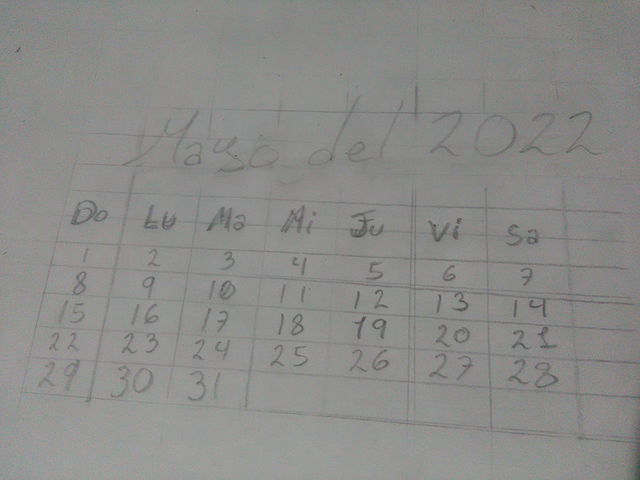 Mayo del 2022
Do Lu Ma Mi Ju Vi Sa
1 2 3 4 5 6 7
8 9 10 11 12 13 14
15 16 17 18 19 20 21
22 23 24 25 26 27 28
29 30 31